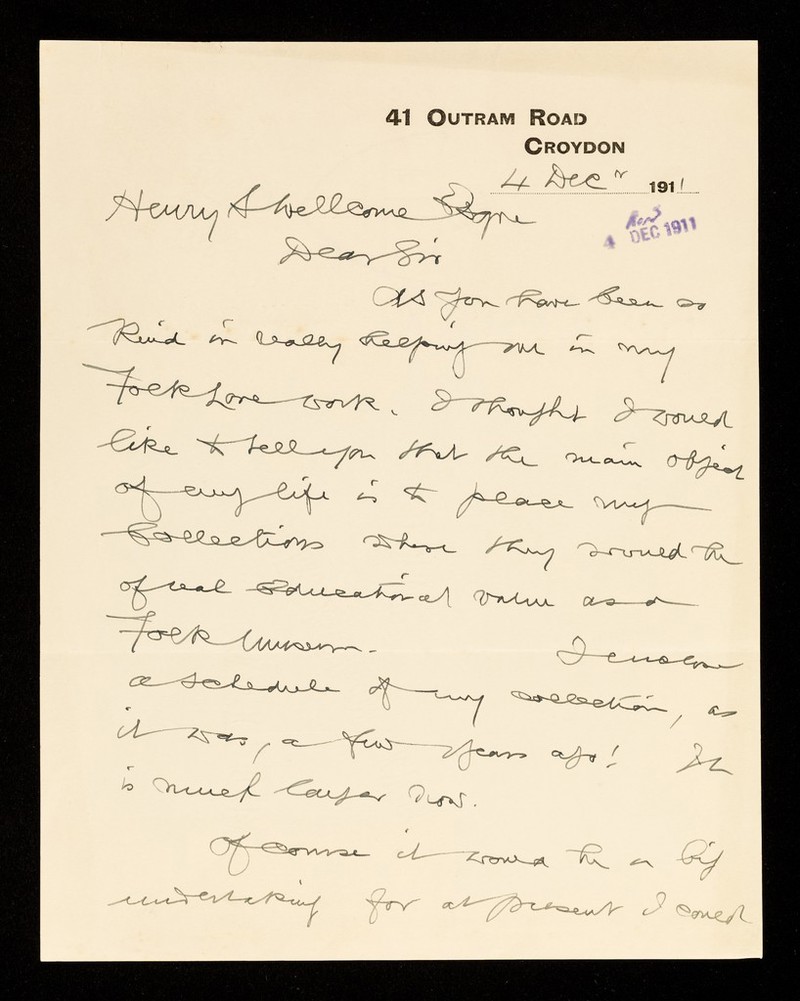 41 OUTRAM ROAD
CROYDON
4 Decr 1911
Henry S Wellcome Esqre
4 DEC 1911
Dear Sir
As you have been so
kind in really helping me in my
Folk Lore work. I thought I would
like to tell you that the main object
of my life is to place my
Collections where they would be
of real Educational value as a
Folk Museum. I enclose
a schedule of my collection, as
it was, a few years ago! It
is much larger now.
Of course it would be a big
undertaking for at present I could